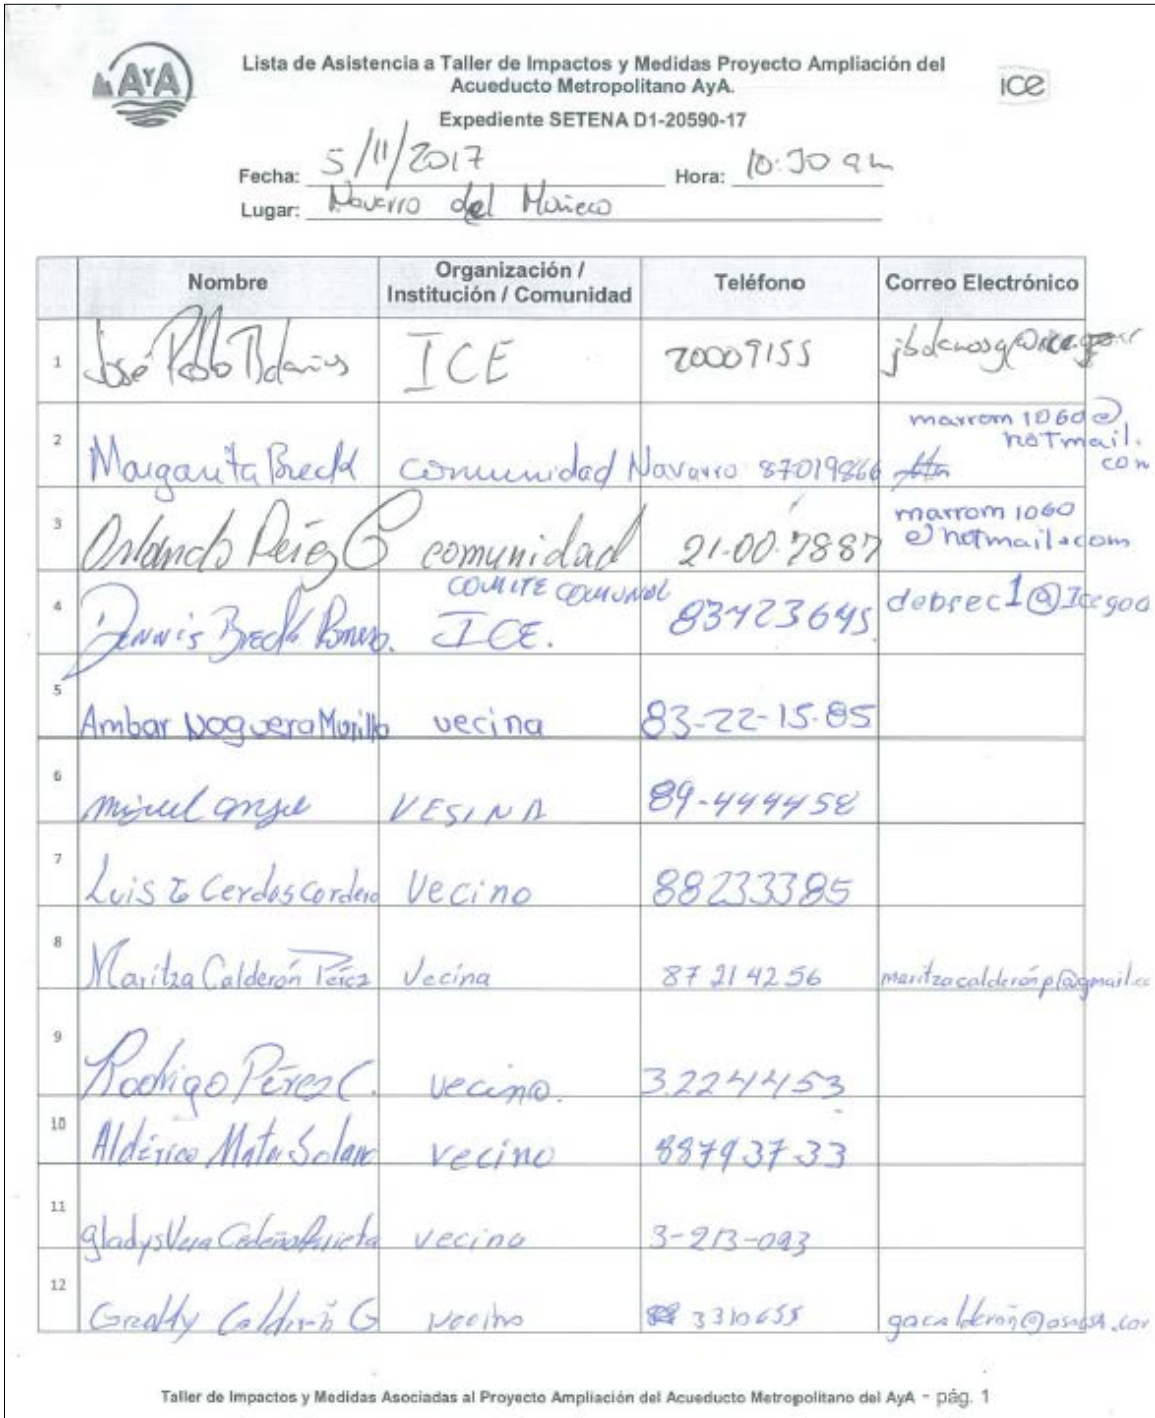 AYA
Lista de Asistencia a Taller de Impactos y Medidas Proyecto Ampliación del
Acueducto Metropolitano AyA.
ice
Expediente SETENA D1-20590-17
Fecha: 5/11/2017 Hora: 10:30 am
Lugar: Navarro del Muñeco
Nombre Organización / Institución / Comunidad Teléfono Correo Electrónico
1 José Pablo Bolaños ICE 20009155
2 Margarita Breck comunidad Navarro 87019866 marrom1060@
hotmail.
com
3 Orlando Pérez C comunidad 21-00-7887 marrom1060
@hotmail.com
4 Dennis Breck ICE. COMITE COMUNAL 83723645 debrec1@Icegoo
5 Ambar Noguera Murillo vecina 83-22-15-85
6 miguel angel VESINA 89-444458
7 Luis Cerdas Cordero Vecino 88233385
8 Maritza Calderón Pérez Vecina 87214256 maritzacalderónp@gmail.co
9 Rodrigo Pérez C. vecino. 32244453
10 Aldérico Mata Solano vecino 88793733
11 gladys Vera Cedeño Arrieta vecino 3-213-093
12 Calderón G vecino 3310655
Taller de Impactos y Medidas Asociadas al Proyecto Ampliación del Acueducto Metropolitano del AyA - pág. 1